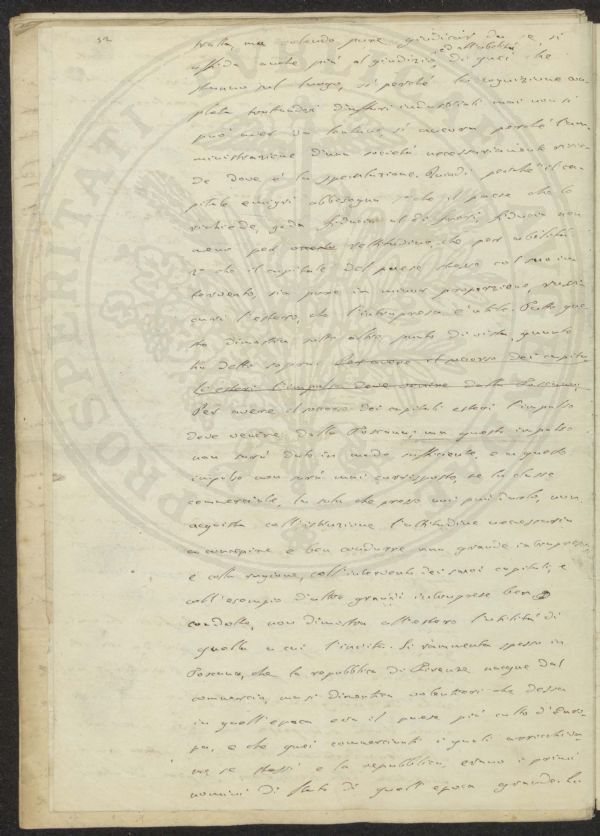 32
tratta, ma volendo pure giudicar da se, si
ed all'abilità
affida anche più al giudizio, di quei che
stanno sul luogo, si perchè la cognizione com
pleta trattandosi d'affari industriali mai non si
può aver da lontano, si ancora perchè l'am
ministrazione d'una società necessariamente risie
de dove è la speculazione. Quindi perchè il ca
pitale emigri abbisogna 1° che il paese che lo
richiede, goda fiducia al di fuori, fiducia non
meno per rettitudine, che per abilità
2° che il capitale del paese stesso col suo in
tervento, sia pure in minor proporzione, rassi
curi l'estero, che l'intrapresa è utile. Tutto que
sto dimostra sotto altro punto di vista, quanto
ho detto sopra. Per avere il soccorso dei capita
li esteri l'impulso deve venire dalla Toscana;
Per avere il soccorso dei capitali esteri l'impulso
deve venire dalla Toscana; ma questo impulso
non sarà dato in modo sufficiente, e a questo
impulso non sarà mai corrisposto, se la classe
commerciale, la sola che presso noi può darlo, non
acquista coll'istruzione l'attitudine necessaria
a concepire e ben condurre una grande intrapresa,
e colla ragione, coll'intervento dei suoi capitali, e
coll'esempio d'altre grandi intraprese ben
condotte, non dimostra all'estero l'utilità di
quella a cui l'incita. Si rammenta spesso in
Toscana, che la repubblica di Firenze nacque dal
commercio, ma si dimentica volentieri che dessa
in quell'epoca era il paese più culto d'Euro
pa, e che quei commercianti i quali arricchiva
no se stessi e la repubblica, erano i primi
uomini di Stato di quell'epoca